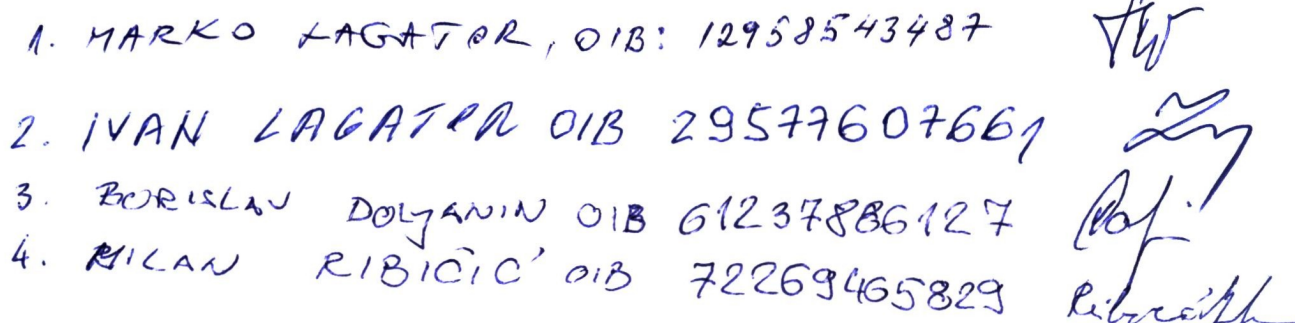 1. MARKO LAGATOR, OIB: 12958543487
2. IVAN LAGATOR OIB 29577607661
3. BORISLAV DOLJANIN OIB 61237886127
4. MILAN RIBIČIĆ OIB 72269465829